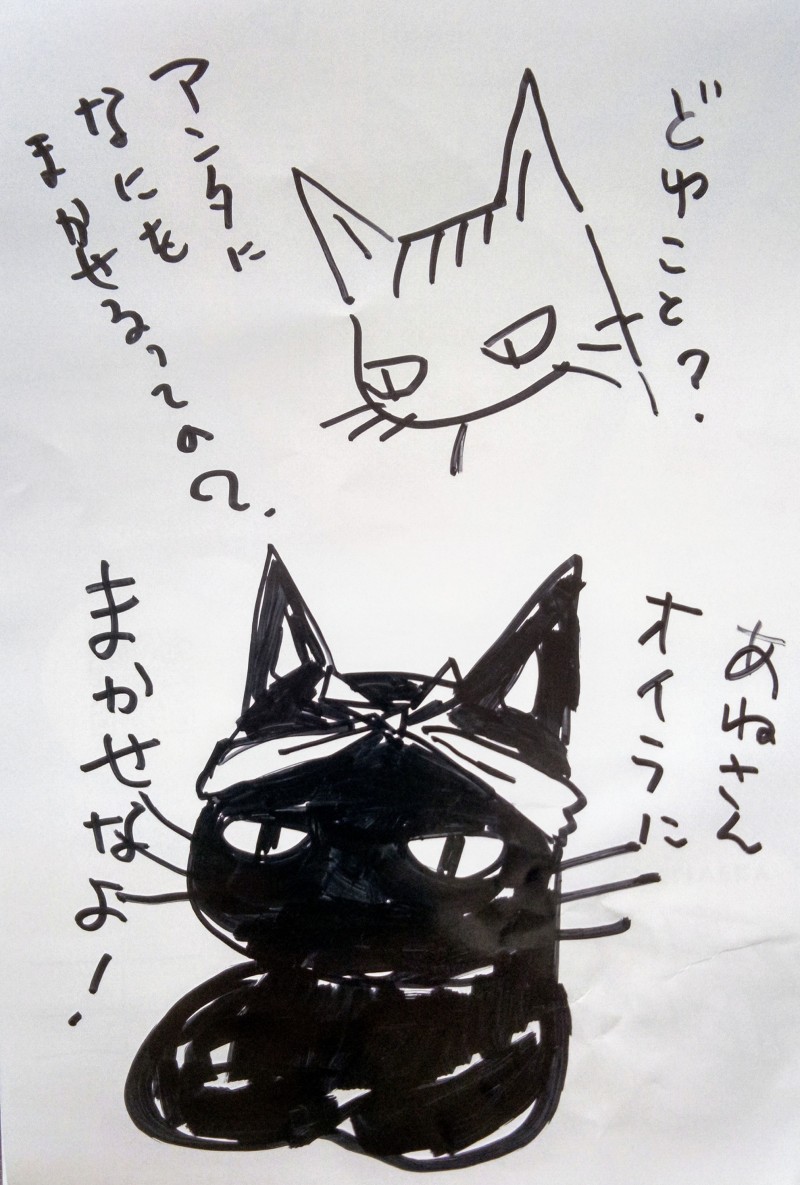 どゆこと?
アンタに
なにを
まかせるっての?
あねさん
オイラに
まかせなよ!